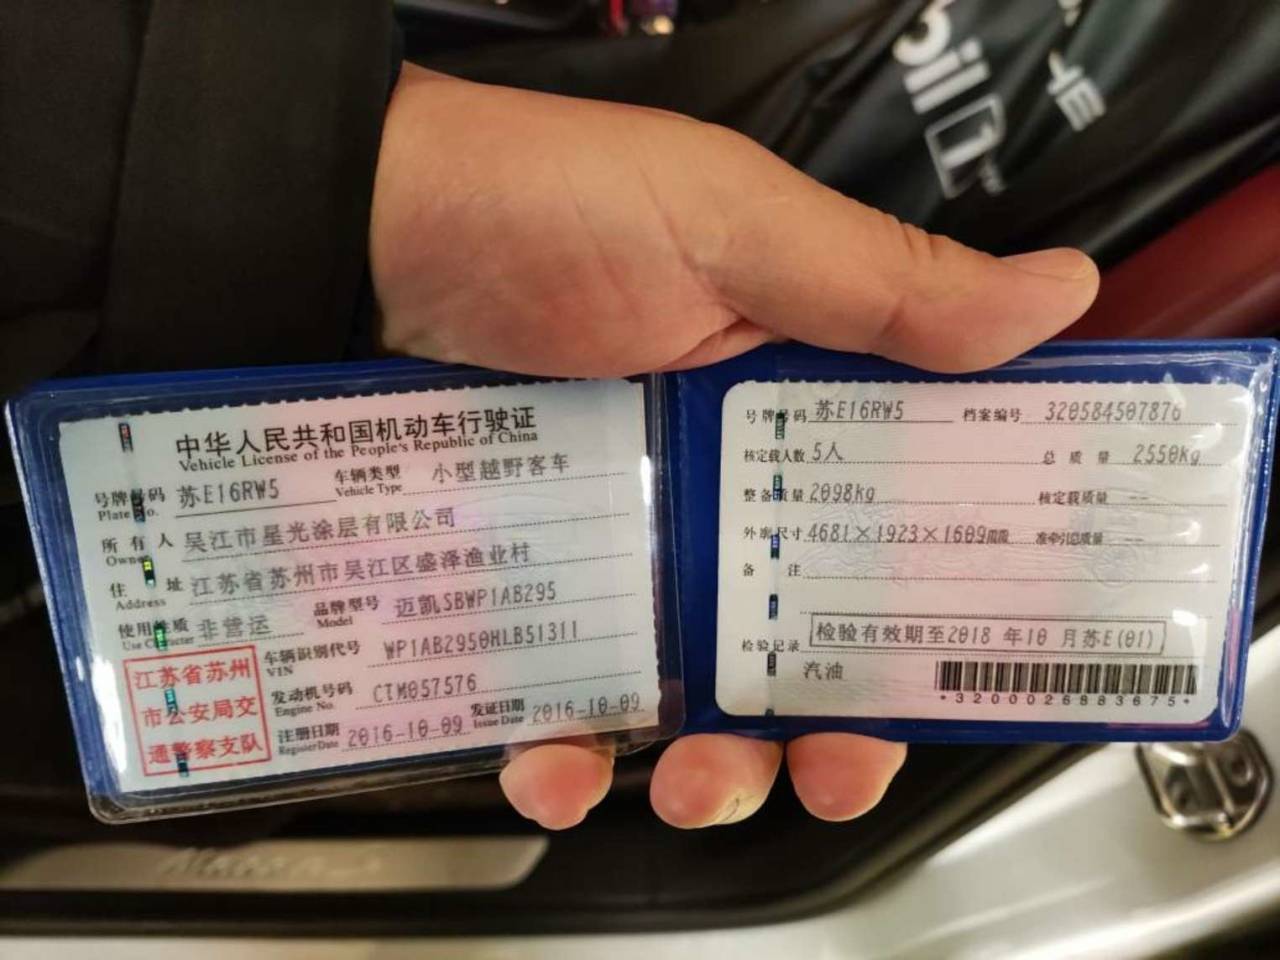 bil 1
中华人民共和国机动车行驶证
Vehicle License of the People's Republic of China
号牌号码 苏E16RW5 车辆类型 小型越野客车
Plate No. Vehicle Type
所有人 吴江市星光涂层有限公司
Owner
住址 江苏省苏州市吴江区盛泽渔业村
Address
使用性质 非营运 品牌型号 迈凯SBWP1AB295
Use Character Model
江苏省苏州
市公安局交
通警察支队
车辆识别代号 WP1AB2950HLB51311
VIN
发动机号码 CTM057576
Engine No.
注册日期 2016-10-09 发证日期 2016-10-09
Register Date Issue Date
号牌号码 苏E16RW5 档案编号 320584507876
核定载人数 5人 总质量 2550kg
整备质量 2098kg 核定载质量 --
外廓尺寸 4681×1923×1609 准牵引总质量 --
备注
检验记录 检验有效期至2018 年10 月苏E(01)
汽油
*3200026883675*